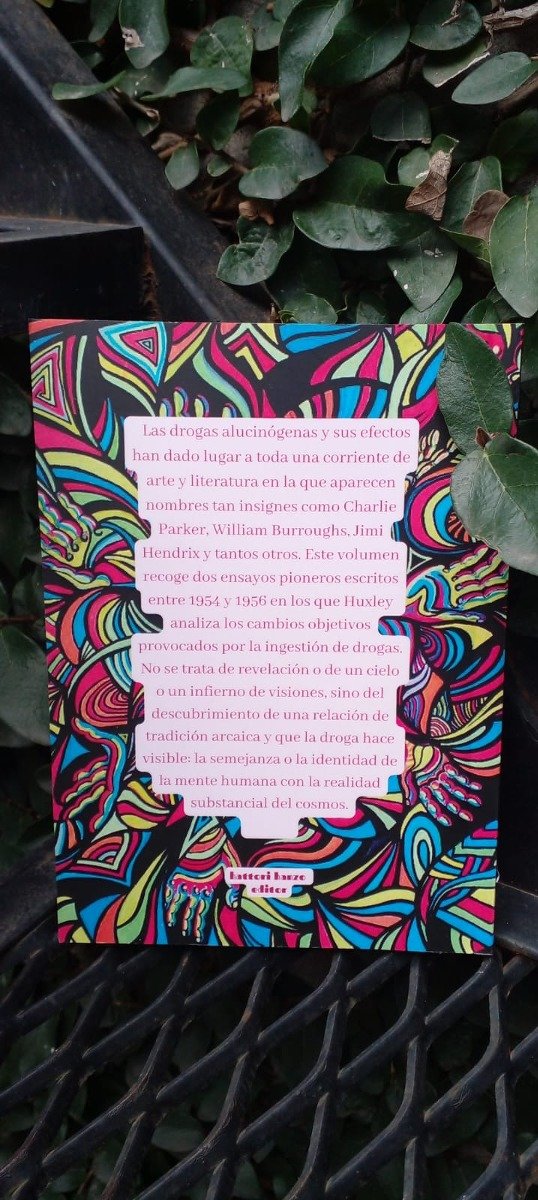 Las drogas alucinógenas y sus efectos
han dado lugar a toda una corriente de
arte y literatura en la que aparecen
nombres tan insignes como Charlie
Parker, William Burroughs, Jimi
Hendrix y tantos otros. Este volumen
recoge dos ensayos pioneros escritos
entre 1954 y 1956 en los que Huxley
analiza los cambios objetivos
provocados por la ingestión de drogas.
No se trata de revelación o de un cielo
o un infierno de visiones, sino del
descubrimiento de una relación de
tradición arcaica y que la droga hace
visible: la semejanza o la identidad de
la mente humana con la realidad
substancial del cosmos.
hattori hanzo
editor